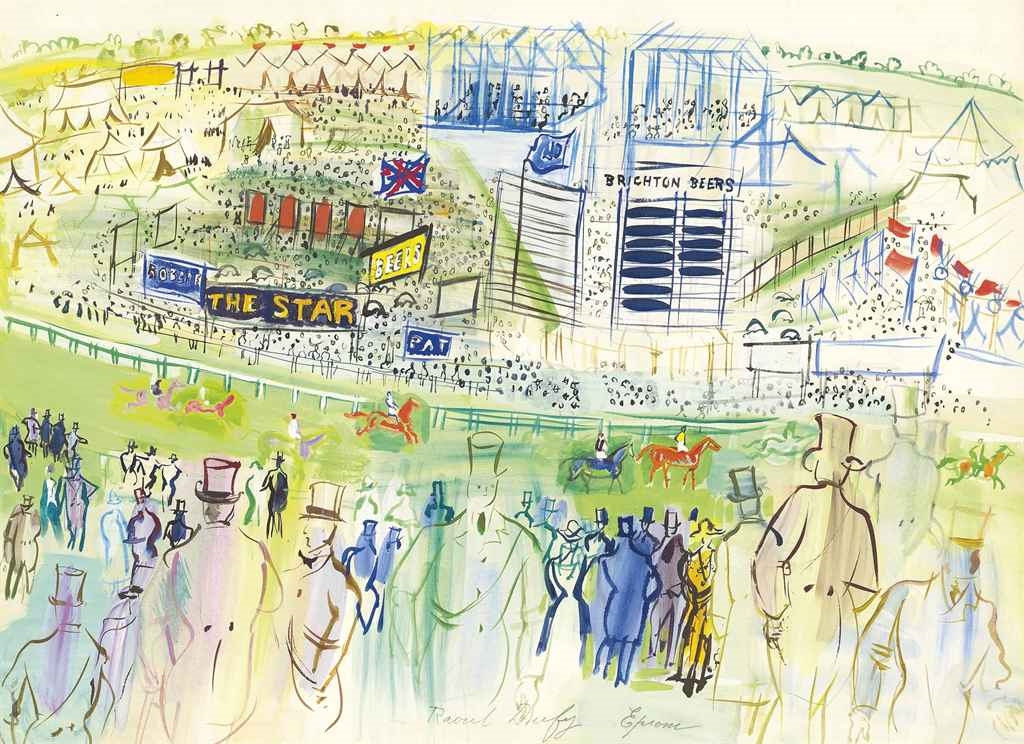 BRIGHTON BEERS
BEERS
THE STAR
PAT
Raoul Dufy Epsom